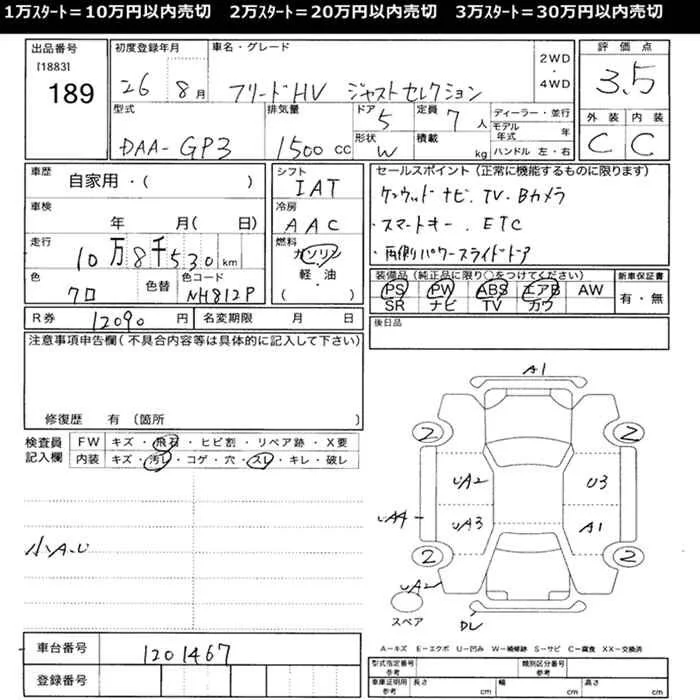 1万スタート＝10万円以内売切　2万スタート＝20万円以内売切　3万スタート＝30万円以内売切
出品番号 初度登録年月 車名・グレード 2WD ・ 4WD 評価点
[1883]
189 26 8月 フリードHV ジャストセレクション 3.5
型式 排気量 ドア 定員 ディーラー・並行 外装 内装
DAA-GP3 1500 cc 5 7人 モデル年式 年 C C
形状 積載
W kg ハンドル 左・右
車歴 自家用・( ) シフト IAT
セールスポイント(正常に機能するものに限ります)
ケンウッドナビ.TV.Bカメラ
・スマートキー. ETC
・両側パワースライドドア
車検 年 月( 日) 冷房 AAC
走行 10万8千530km 燃料 ガソリン・軽油 ( )
色 クロ 色替 色コード NH812P
装備品(純正品に限り○をつけてください) 新車保証書
PS PW ABS エアB AW 有・無
SR ナビ TV カワ
R券 12090円 名変期限 月 日
後日品
注意事項申告欄(不具合内容等は具体的に記入して下さい)
修復歴 有 (箇所 )
検査員記入欄 FW キズ・飛石・ヒビ割・リペア跡・X要
内装 キズ・汚レ・コゲ・穴・スレ・キレ・破レ
小A.U
A1
2 2
UA2 U3
UA4 UA3 A1
2 2
UA2
スペア DL
A－キズ E－エクボ U－凹み W－補修跡 S－サビ C－腐食 XX－交換済
車台番号 1201467
登録番号
型式指定番号 参考 類別区分番号 参考
車庫証明用 参考 長さ cm 幅 cm 高さ cm